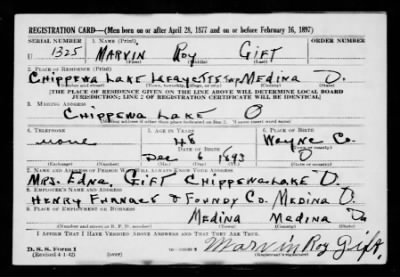 REGISTRATION CARD—(Men born on or after April 28, 1877 and on or before February 16, 1897)
SERIAL NUMBER 1. NAME (Print) ORDER NUMBER
U 1325 MARVIN Roy GIFT
(First) (Middle) (Last)
2. PLACE OF RESIDENCE (Print)
CHIPPEWA LAKE LAFAYETTE TWP. MEDINA O.
(Number and street) (Town, township, village, or city) (County) (State)
[THE PLACE OF RESIDENCE GIVEN ON THE LINE ABOVE WILL DETERMINE LOCAL BOARD
JURISDICTION; LINE 2 OF REGISTRATION CERTIFICATE WILL BE IDENTICAL]
3. MAILING ADDRESS
CHIPPEWA LAKE O
[Mailing address if other than place indicated on line 2. If same insert word same]
4. TELEPHONE 5. AGE IN YEARS 6. PLACE OF BIRTH
none 48 Wayne Co.
DATE OF BIRTH
Dec 6 1893 O
(Exchange) (Number) (Mo.) (Day) (Yr.) (State or country)
7. NAME AND ADDRESS OF PERSON WHO WILL ALWAYS KNOW YOUR ADDRESS
MRS. Edna. GIFT CHIPPEWA LAKE O.
8. EMPLOYER'S NAME AND ADDRESS
HENRY FURNACE & FOUNDY CO. MEDINA O.
9. PLACE OF EMPLOYMENT OR BUSINESS
MEDINA MEDINA O
(Number and street or R. F. D. number) (Town) (County) (State)
I AFFIRM THAT I HAVE VERIFIED ABOVE ANSWERS AND THAT THEY ARE TRUE.
D. S. S. Form 1
(Revised 4-1-42) (over) Marvin Roy Gift.